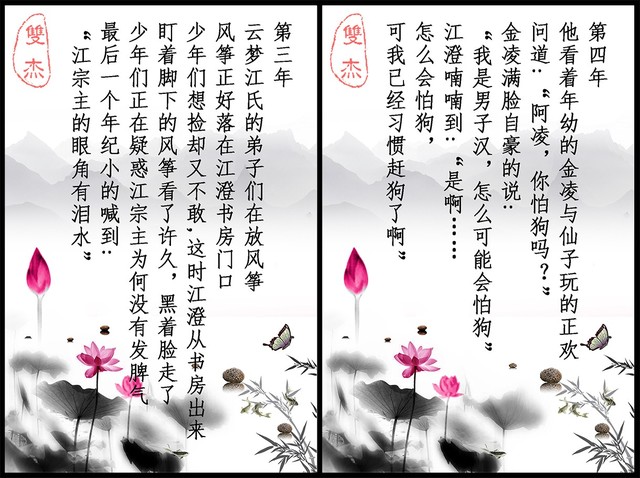 雙杰
第三年
云梦江氏的弟子们在放风筝
风筝正好落在江澄书房门口
少年们想捡却又不敢,这时江澄从书房出来
盯着脚下的风筝看了许久，黑着脸走了
少年们正在疑惑江宗主为何没有发脾气
最后一个年纪小的喊到：
“江宗主的眼角有泪水”
雙杰
第四年
他看着年幼的金凌与仙子玩的正欢
问道：“阿凌，你怕狗吗？”
金凌满脸自豪的说：
“我是男子汉，怎么可能会怕狗”
江澄喃喃到：“是啊……
怎么会怕狗，
可我已经习惯赶狗了啊”